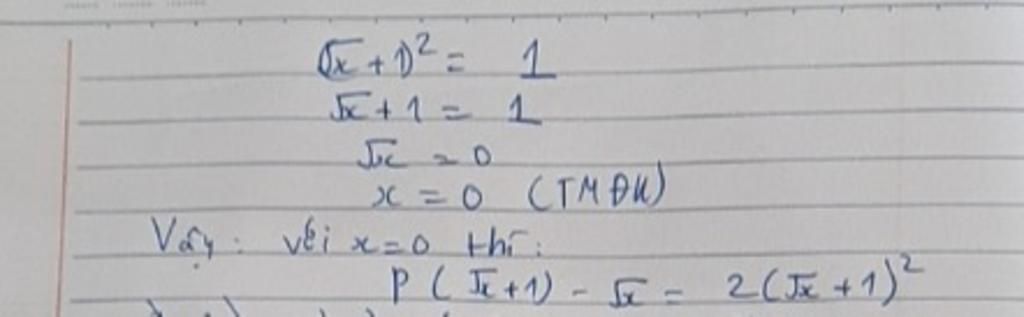 (√x + 1)² = 1
√x + 1 = 1
√x = 0
x = 0 (TMĐK)
Vậy: với x = 0 thì:
P(√x + 1) - √x = 2(√x + 1)²